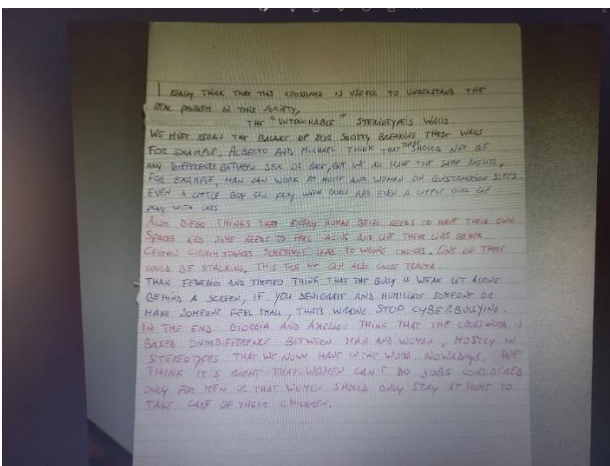 I REALLY THINK THAT THIS CROSSWORD IS USEFUL TO UNDERSTAND THE
REAL PROBLEM IN THIS SOCIETY,
THE "UNTOUCHABLE" STEREOTYPES WALLS.
WE MUST REGAIN THE BALANCE OF OUR SOCIETY BREAKING THESE WALLS
FOR EXAMPLE, ALBERTO AND MICHAEL THINK THAT THERE SHOULD NOT BE
ANY DIFFERENCE BETWEEN SEX OR RACE, BUT WE ALL HAVE THE SAME RIGHTS,
FOR EXAMPLE, MAN CAN WORK AT HOME AND WOMAN ON CONSTRUCTION
EVEN A LITTLE BOY CAN PLAY WITH AND EVEN A LITTLE GIRL CAN
PLAY WITH CARS
ALSO DIEGO THINKS THAT EVERY HUMAN BEING NEEDS TO HAVE THEIR OWN
SPACES AND SOME NEEDS TO FEEL ALIVE AND LIVE THEIR LIVES BETTER.
CERTAIN SOMETIMES LEAD TO WRONG CHOICES. ONE OF THESE
COULD BE STALKING, THIS FOR ME CAN ALSO CAUSE TRAUMA.
THAN FEDERICO AND THINK THAT THE BULLY IS WEAK LET ALONE
BEHIND A SCREEN, IF YOU DENIGRATE AND HUMILIATE SOMEONE OR
MAKE SOMEONE FEEL SMALL, THAT'S WRONG. STOP CYBERBULLYING.
IN THE END GIORGIA AND THINK THAT THE CROSSWORD IS
BASED ON DIFFERENCE BETWEEN MAN AND WOMAN, MOSTLY IN
STEREOTYPES THAT WE NOW HAVE IN THE WORD. NOWADAYS, WE
THINK IT'S RIGHT THAT WOMEN CAN'T DO JOBS CONSIDERED
ONLY FOR MEN OR THAT WOMEN SHOULD ONLY STAY AT HOME TO
TAKE CARE OF THEIR CHILDREN.